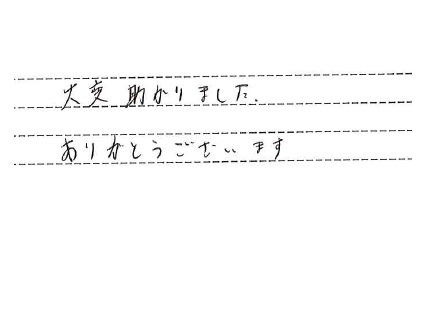 大変助かりました.
ありがとうございます